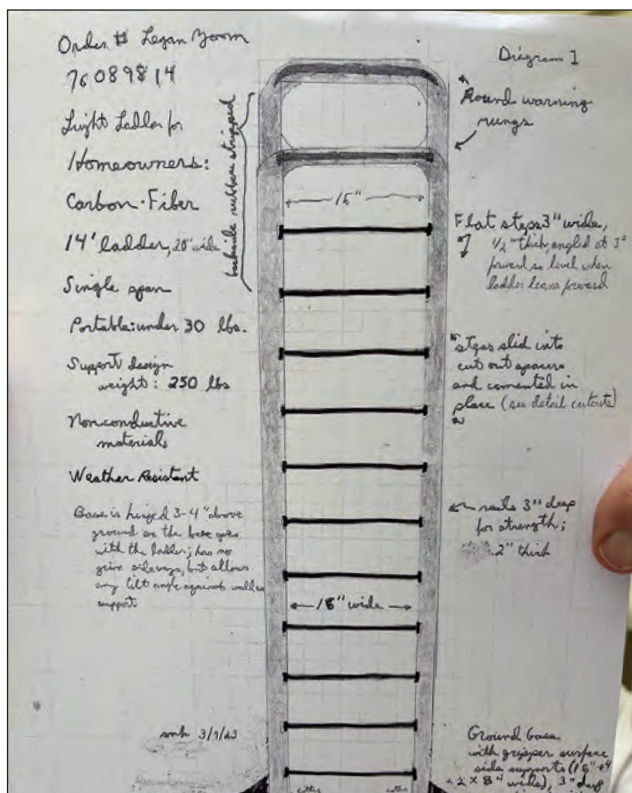 Order # Legan Zoom
76089814
Light Ladder for
Homeowners:
Carbon-Fiber
14' ladder, 20" wide
Single span
Portable: under 30 lbs.
Support design
weight: 250 lbs
Nonconductive
materials
Weather Resistant
Base is hinged 3-4" above
ground so the base goes
with the ladder; has no
give sideways, but allows
any tilt angle against wall as
support
smh 3/7/23
backside rubber stripped
Diagram 1
Round warning
rungs
15"
Flat steps 3" wide,
1/2" thick, angled at 3°
forward so level when
ladder leans forward
steps slid into
cut out spacers
and cemented in
place (see detail cutouts)
rails 3" deep
for strength;
2" thick
18" wide
Ground base
with gripper surface
side supports (18" + 4
+ 2 x 8" wide), 3" deep